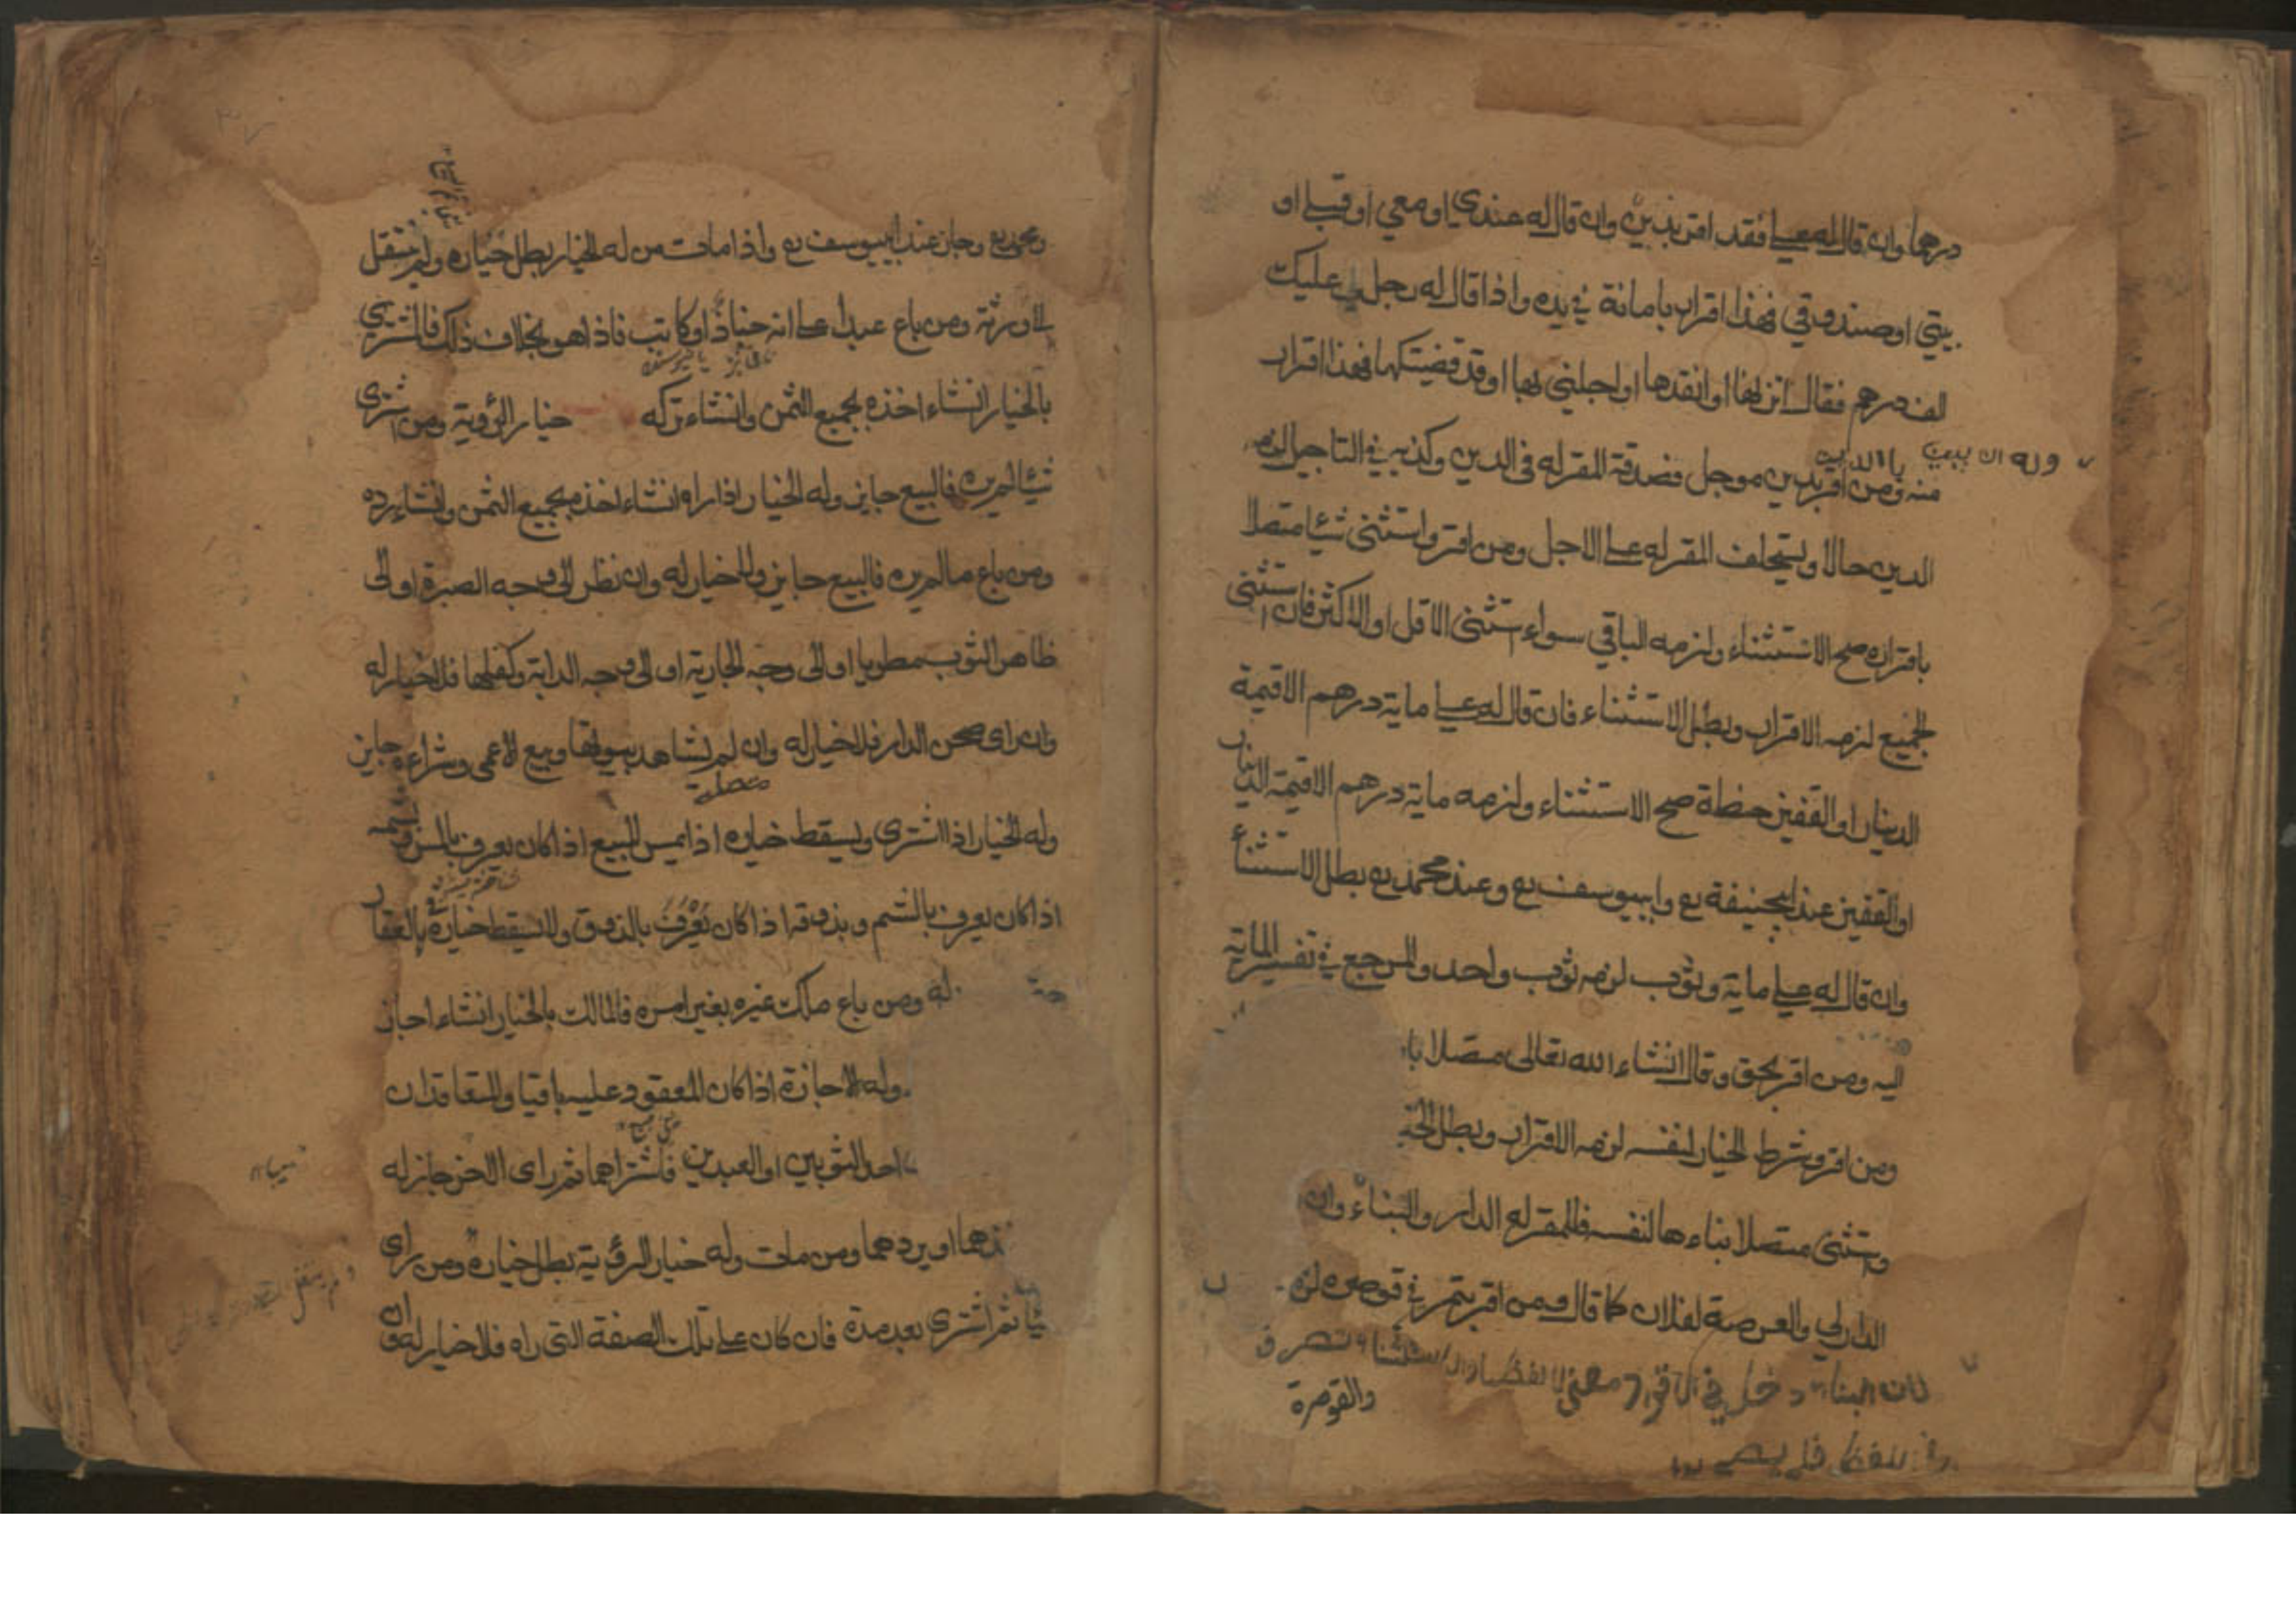 درهما وان قال له علي فقد اقر بدين وان قال له عندي او معي او قبلي او
بيتي او صندوقي فهذا اقرار بامانة في يده واذا قال له رجل لي عليك
لف درهم فقال اتزنها او انقدها او اجلني بها او قد قضيتكها فهذا اقرار
منه ومن اقر بدين موجل فصدقة المقر له في الدين وكذبه في التاجيل لزمه
الدين حالا ويستحلف المقر له علي الاجل ومن اقر واستثنى شيئا متصلا
باقراره صح الاستثناء ولزمه الباقي سواء استثنى الاقل او الاكثر فان استثنى
الجميع لزمه الاقرار وبطل الاستثناء فان قال له علي ماية درهم الا قيمة
الدينار او القفيز حنطة صح الاستثناء ولزمه ماية درهم الا قيمة الدينار
او القفيز عند ابيحنيفة رح وابييوسف رح وعند محمد رح بطل الاستثناء
وان قال له علي ماية وثوب لزمه ثوب واحد والمرجع في تفسير الماية
اليه ومن اقر بحق وقال انشاء الله تعالى متصلا با
ومن اقر وشرط الخيار لنفسه لزمه الاقرار وبطل الخ
واستثنى متصلا بناءها لنفسه فللمقر له الدار والبناء وان
الدار لي والعرصة لفلان كما قال ومن اقر بتمر في قوصرة لز
لان البناء دخل في الاقرار معنى لا لفظا والاستثناء تصرف
والقوصرة
ومحمد رح وجاز عند ابييوسف رح واذا مات من له الخيار بطل خياره ولم ينتقل
الا ورثة ومن باع عبدا علي انه خباز او كاتب فاذا هو بخلاف ذلك فالمشتري
بالخيار انشاء اخذه بجميع الثمن وانشاء تركه خيار الرؤية ومن اشترى
شيئا لم يره فالبيع جايز وله الخيار اذا راه انشاء اخذه بجميع الثمن وانشاء رده
ومن باع ما لم يره فالبيع جايز ولا خيار له وان نظر الى وجه الصبرة او الى
ظاهر الثوب مطويا او الى وجه الجارية او الى وجه الدابة وكفلها فلا خيار له
وان راى صحن الدار فلا خيار له وان لم يشاهد بيوتها وبيع الاعمى وشراءه جايز
وله الخيار اذا اشترى ويسقط خياره اذا يمس المبيع اذا كان يعرف بالمس وبشمه
اذا كان يعرف بالشم وبذوقه اذا كان يعرف بالذوق ولا يسقط خياره في العقار
له ومن باع ملك غيره بغير امره فالمالك بالخيار انشاء اجاز
وله الاجازة اذا كان المعقود عليه باقيا والمتعاقدان
احد الثوبين او العبدين فاشتراهما ثم راى الاخر جاز له
ذهما او يردهما ومن مات وله خيار الرؤية بطل خياره ومن راى
شيا ثم اشترى بعد مدة فان كان علي تلك الصفة التي راه فلا خيار له وان